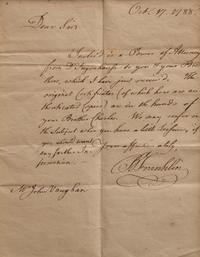 Oct. 17. 1788
Dear Sir,
Inclos'd is a Power of Attorney
from to you & your Bro-
ther, which I have just receiv'd. The
original Certificates (of which here are au-
thenticated Copies) are in the hands of
your Brother Charles. We may confer on
the Subject when you have a little Leisure, if
you should want
any farther In-
formation.
B Franklin
Mr John Vaughan